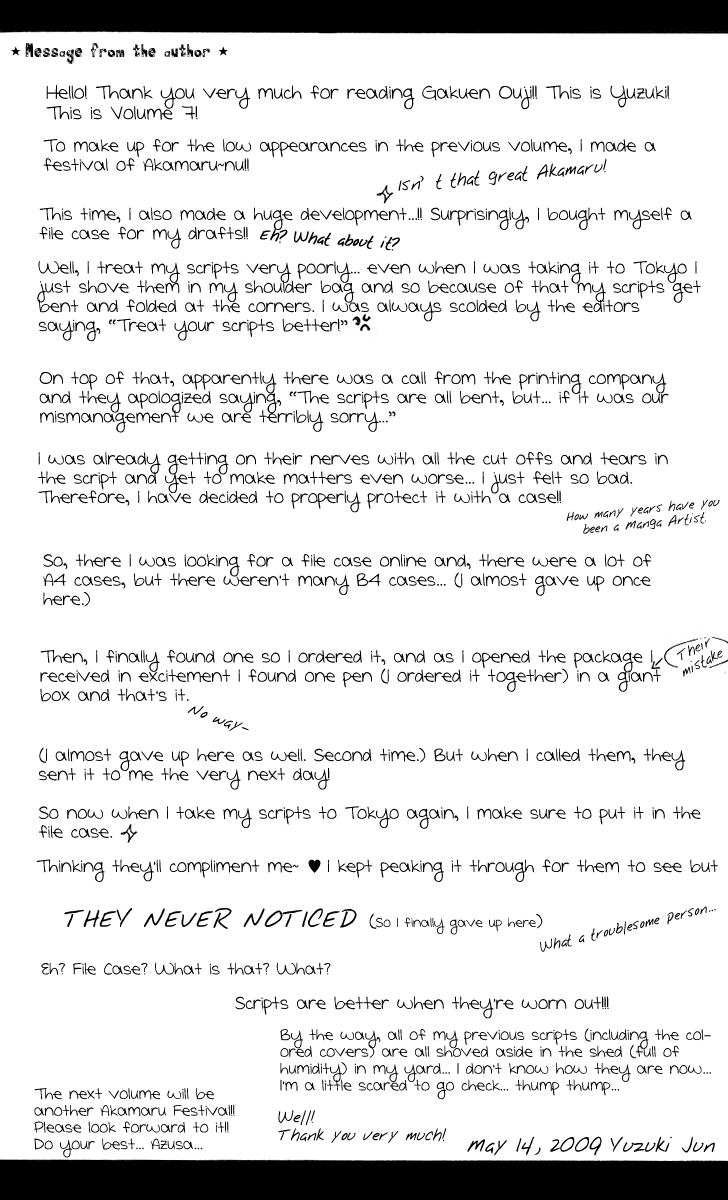 ★ Message from the author ★
Hello! Thank you very much for reading Gakuen Ouji!! This is Yuzuki!
This is Volume 7!
To make up for the low appearances in the previous volume, I made a
festival of Akamaru~nu!!
Isn't that great Akamaru!
This time, I also made a huge development...!! Surprisingly, I bought myself a
file case for my drafts!! Eh? What about it?
Well, I treat my scripts very poorly... even when I was taking it to Tokyo I
just shove them in my shoulder bag and so because of that my scripts get
bent and folded at the corners. I was always scolded by the editors
saying, "Treat your scripts better!"
On top of that, apparently there was a call from the printing company
and they apologized saying, "The scripts are all bent, but... if it was our
mismanagement we are terribly sorry..."
I was already getting on their nerves with all the cut offs and tears in
the script and yet to make matters even worse... I just felt so bad.
Therefore, I have decided to properly protect it with a case!!
How many years have you
been a Manga Artist
So, there I was looking for a file case online and, there were a lot of
A4 cases, but there weren't many B4 cases... (I almost gave up once
here.)
Then, I finally found one so I ordered it, and as I opened the package I
Their
mistake
received in excitement I found one pen (I ordered it together) in a giant
box and that's it.
No way~
(I almost gave up here as well. Second time.) But when I called them, they
sent it to me the very next day!
So now when I take my scripts to Tokyo again, I make sure to put it in the
file case.
Thinking they'll compliment me~ ♥ I kept peaking it through for them to see but
THEY NEVER NOTICED (So I finally gave up here)
What a troublesome person...
Eh? File Case? What is that? What?
Scripts are better when they're worn out!!!
By the way, all of my previous scripts (including the col-
ored covers) are all shoved aside in the shed (full of
humidity) in my yard... I don't know how they are now...
I'm a little scared to go check... thump thump...
The next volume will be
another Akamaru Festival!!
Please look forward to it!!
Do your best... Azusa...
Well!
Thank you very much!
May 14, 2009 Yuzuki Jun